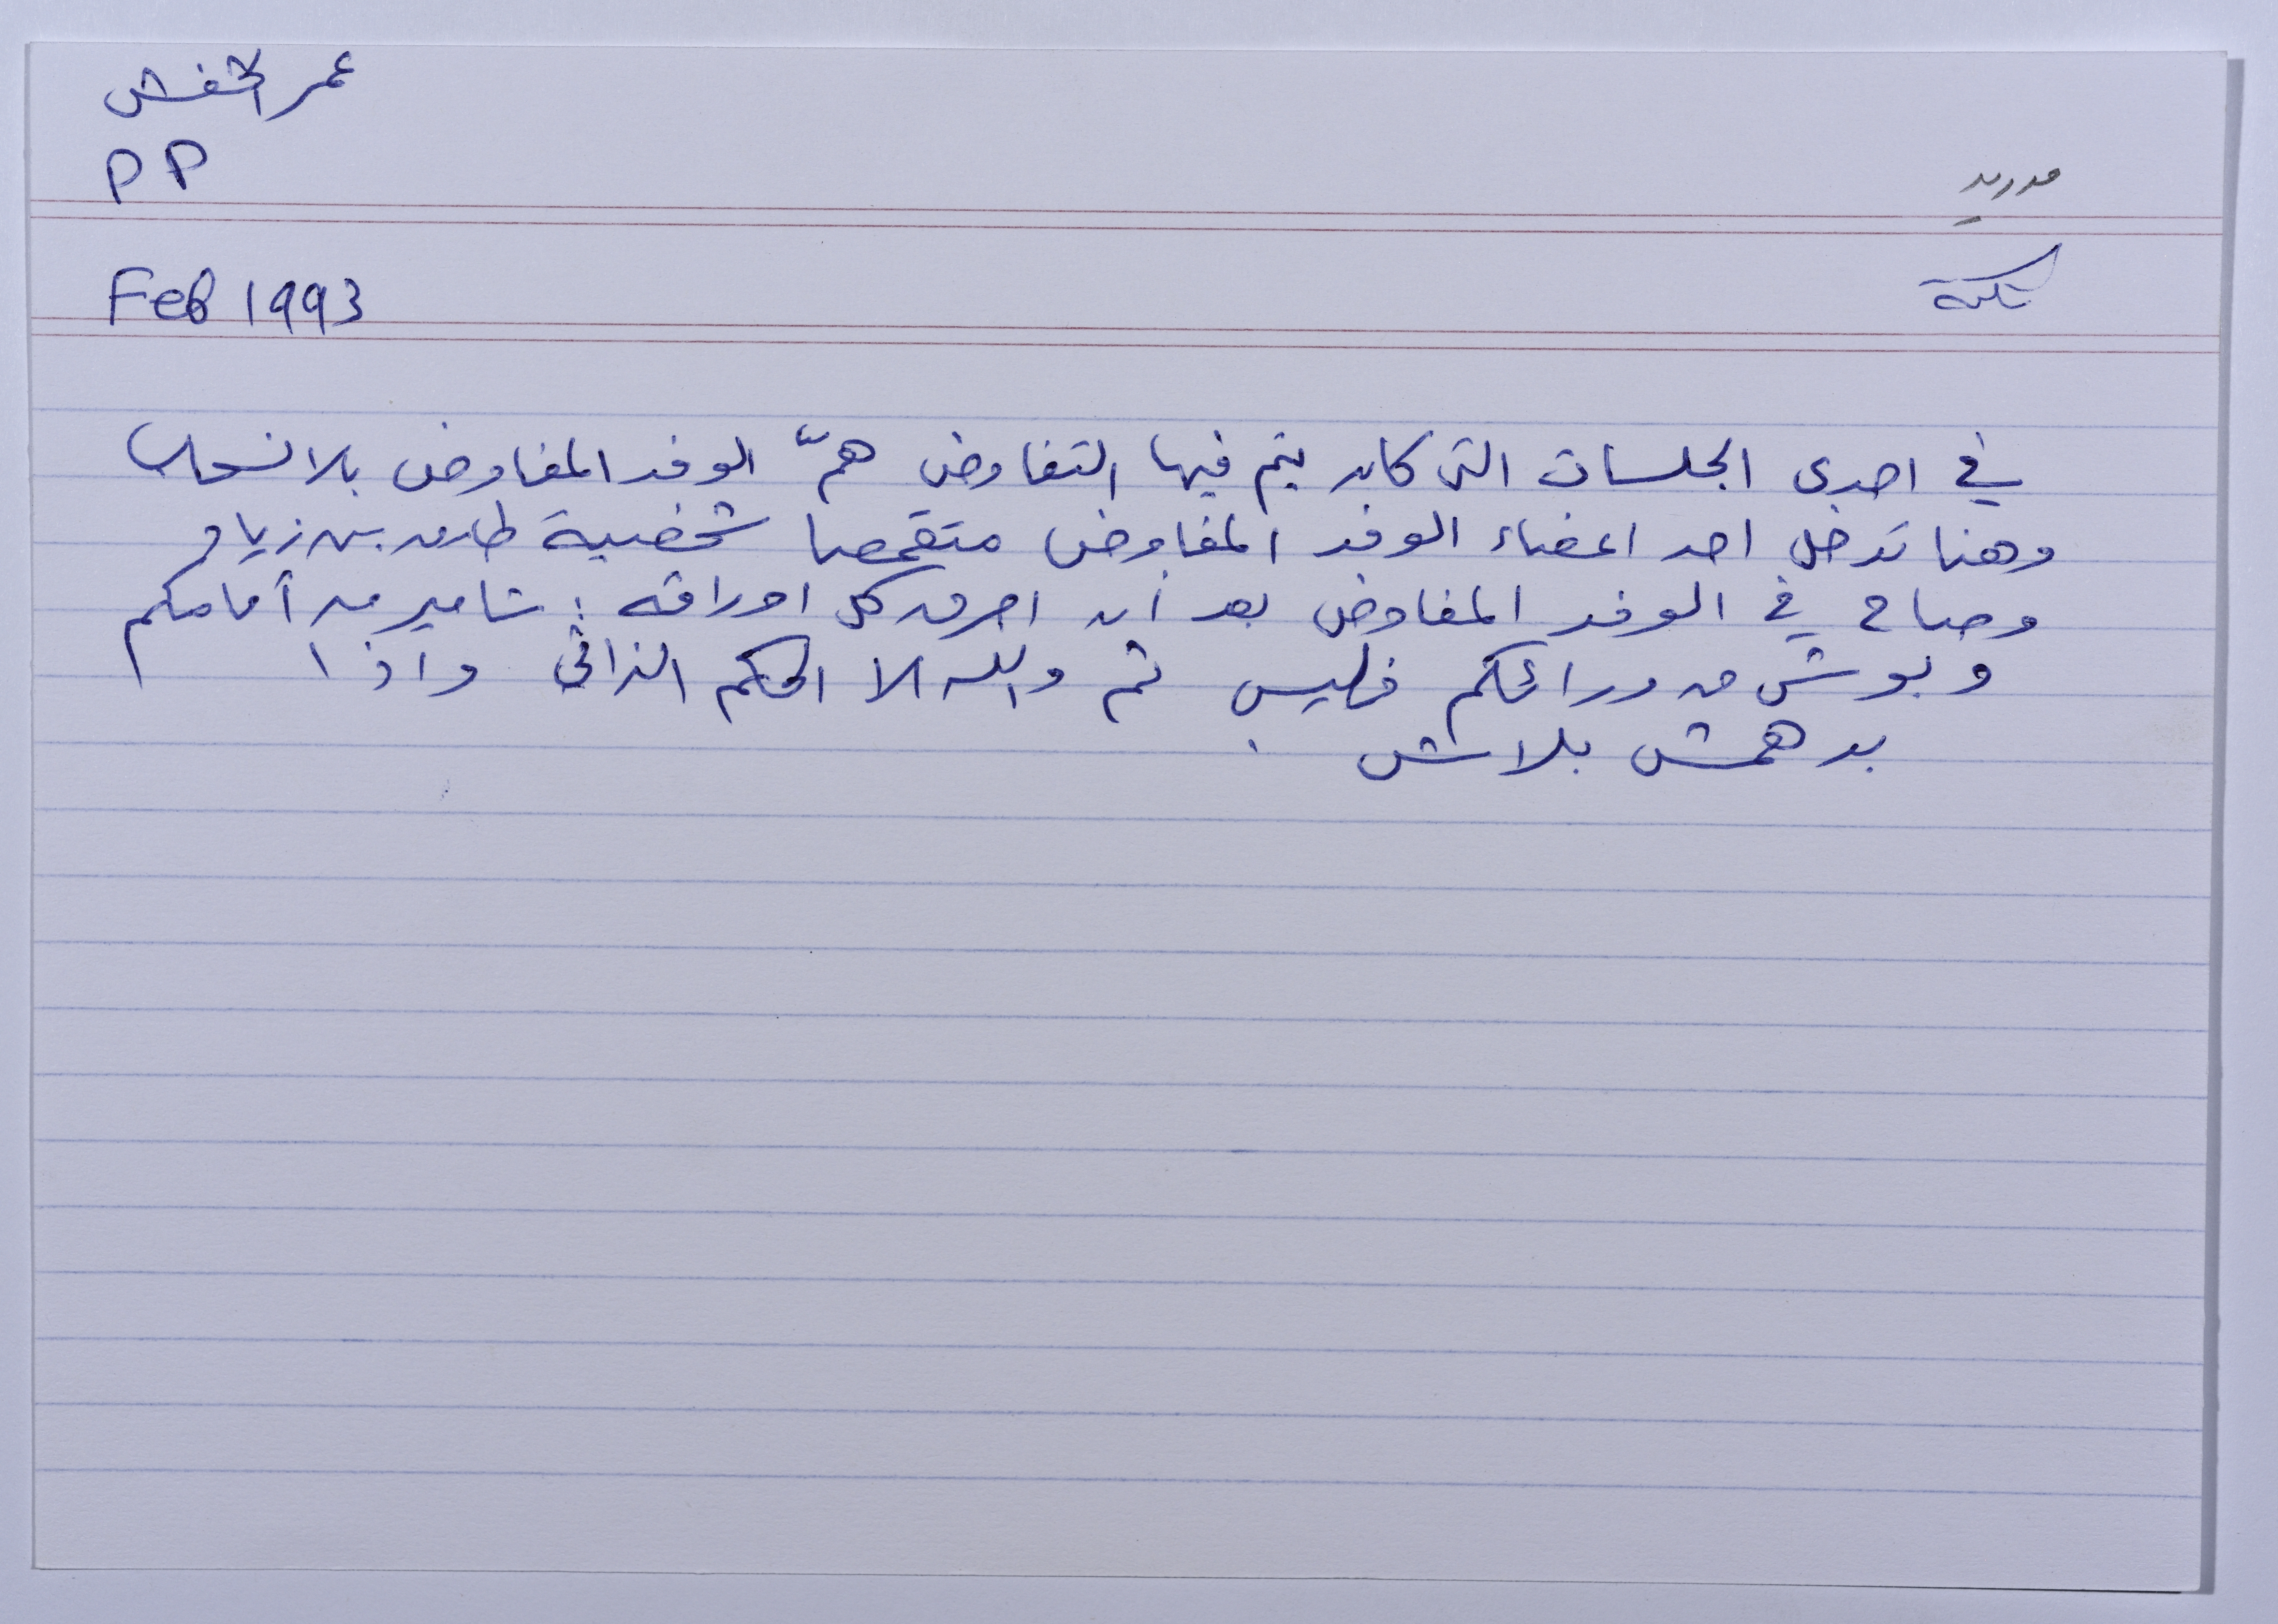 عمر الخفش
PP
مدريد
نكتة
Feb 1993
في احدى الجلسات التي كان يتم فيها التفاوض همّ الوفد المفاوض بالانسحاب
وهنا تدخل احد اعضاء الوفد المفاوض متقمصا شخصية طارق بن زياد
وصاح في الوفد المفاوض بعد أن احرق كل اوراقه : شامير من أمامكم
وبوش من ورائكم فليس ثم والله الا الحكم الذاتي واذا
بدهمش بلاش .